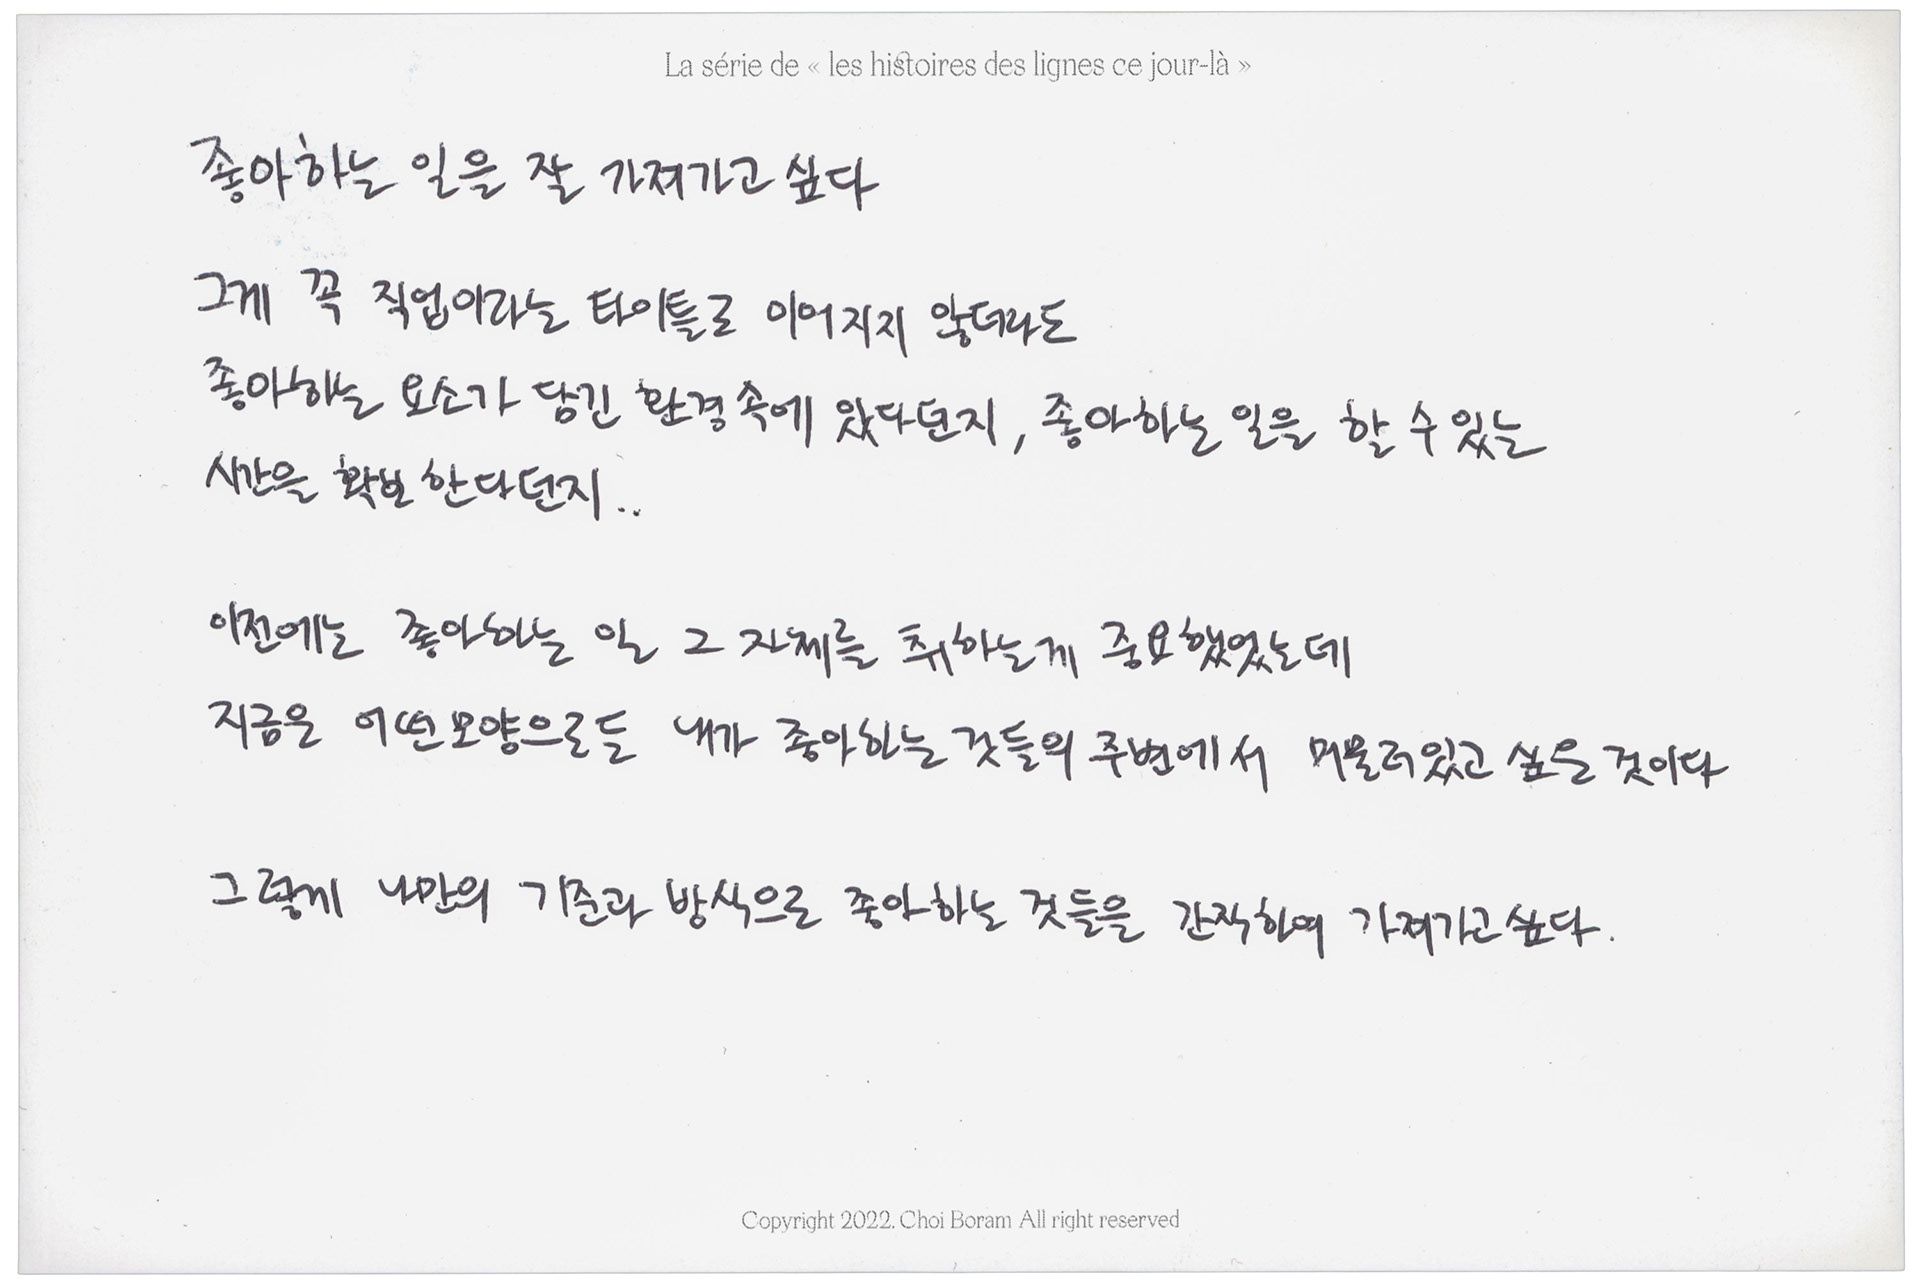 La série de « les histoires des lignes ce jour-là »
좋아하는 일을 잘 가져가고 싶다
그게 꼭 직업이라는 타이틀로 이어지지 않더라도
좋아하는 요소가 담긴 환경 속에 있다던지, 좋아하는 일을 할 수 있는
시간을 확보 한다던지..
이전에는 좋아하는 일 그 자체를 취하는게 중요했었는데
지금은 어떤 모양으로든 내가 좋아하는 것들의 주변에서 머물러있고 싶은 것이다
그렇게 나만의 기준과 방식으로 좋아하는 것들을 간직하여 가져가고 싶다.
Copyright 2022. Choi Boram All right reserved